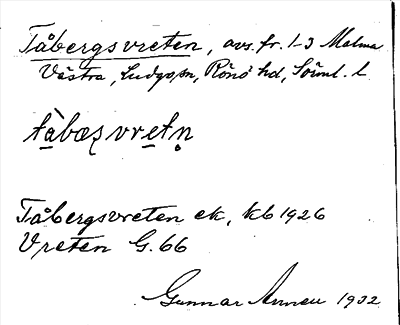 Tåbergsvreten, avs. fr. 1-3 Malma
Västra, Ludgo sn, Rönö hd, Söml. l.
tàbæʂvretn̥
Tåbergsvreten ek, kb 1926
Vreten G. 66
Gunnar 1932